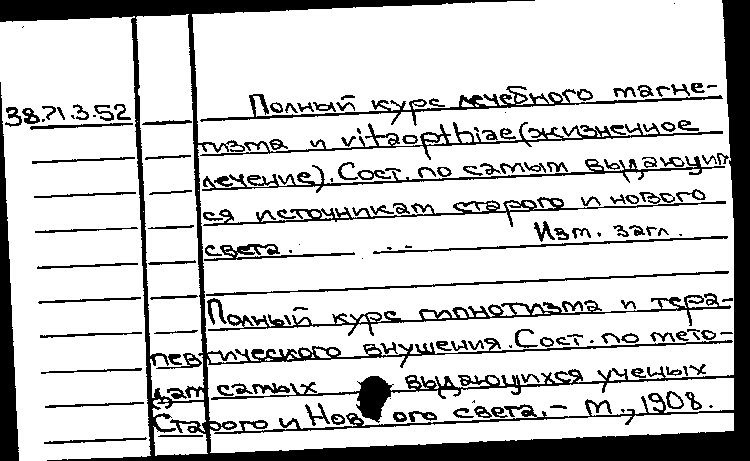 38.71.3.52
Полный курс лечебного магне-
тизма и vitaopthiae (жизненное
лечение). Сост. по самым выдающим
ся источникам старого и нового
света. ... Изм. загл.
Полный курс гипнотизма и тера-
певтического внушения. Сост. по мето-
дам самых выдающихся ученых
Старого и Нов ого света. – М., 1908.